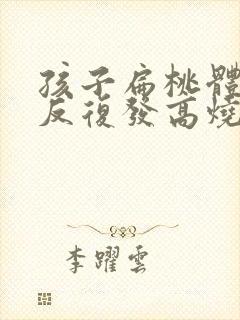 孩子扁桃體
反復發高燒
李躍雲